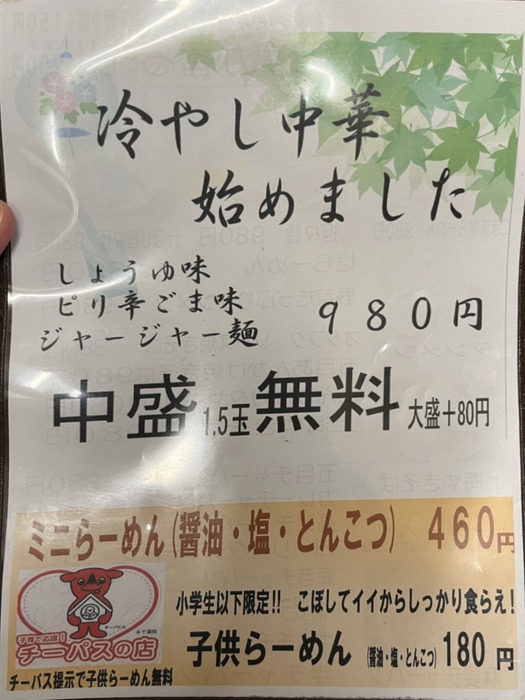 冷やし中華
始めました
しょうゆ味
ピリ辛ごま味
ジャージャー麺
９８０円
中盛1.5玉無料 大盛＋80円
ミニらーめん(醤油・塩・とんこつ) 460円
小学生以下限定!! こぼしてイイからしっかり食らえ！
子供らーめん (醤油・塩・とんこつ) 180円
子育て応援！
チーパスの店
チーパス提示で子供らーめん無料